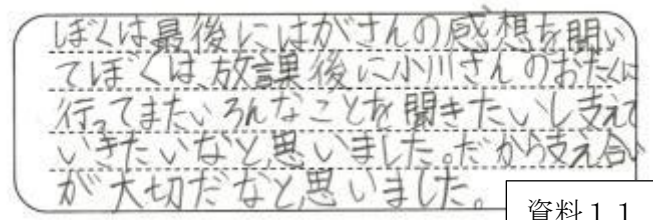 ぼくは最後にはがさんの感想を聞い
てぼくは、放課後に小川さんのおたくに
行ってまたいろんなことを聞きたいし支えて
いきたいなと思いました。だから支え合い
が大切だなと思いました。
資料11